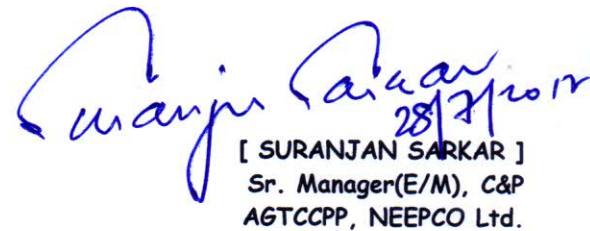 Suranjan Sarkar
[ SURANJAN SARKAR ]
Sr. Manager(E/M), C&P
AGTCCPP, NEEPCO Ltd.